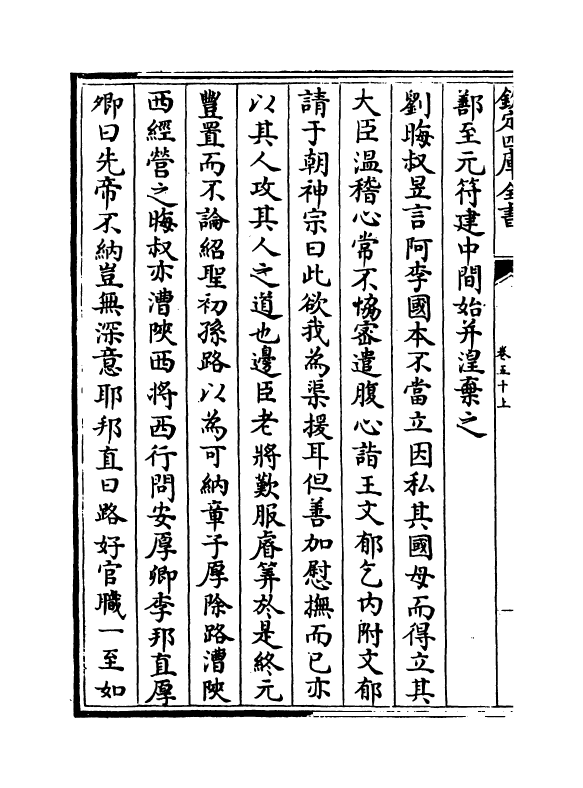 欽定四庫全書
卷五十上
鄯至元符建中間始并湟棄之
劉晦叔昱言阿李國本不當立因私其國母而得立其
大臣溫稽心常不恊密遣腹心詣王文郁乞内附文郁
請于朝神宗曰此欲我為渠援耳但善加慰撫而已亦
以其人攻其人之道也邊臣老將歎服睿筭於是終元
豐置而不論紹聖初孫路以為可納章子厚除路漕陜
西經營之晦叔亦漕陜西將西行問安厚卿李邦直厚
卿曰先帝不納豈無深意耶邦直曰路好官職一至如